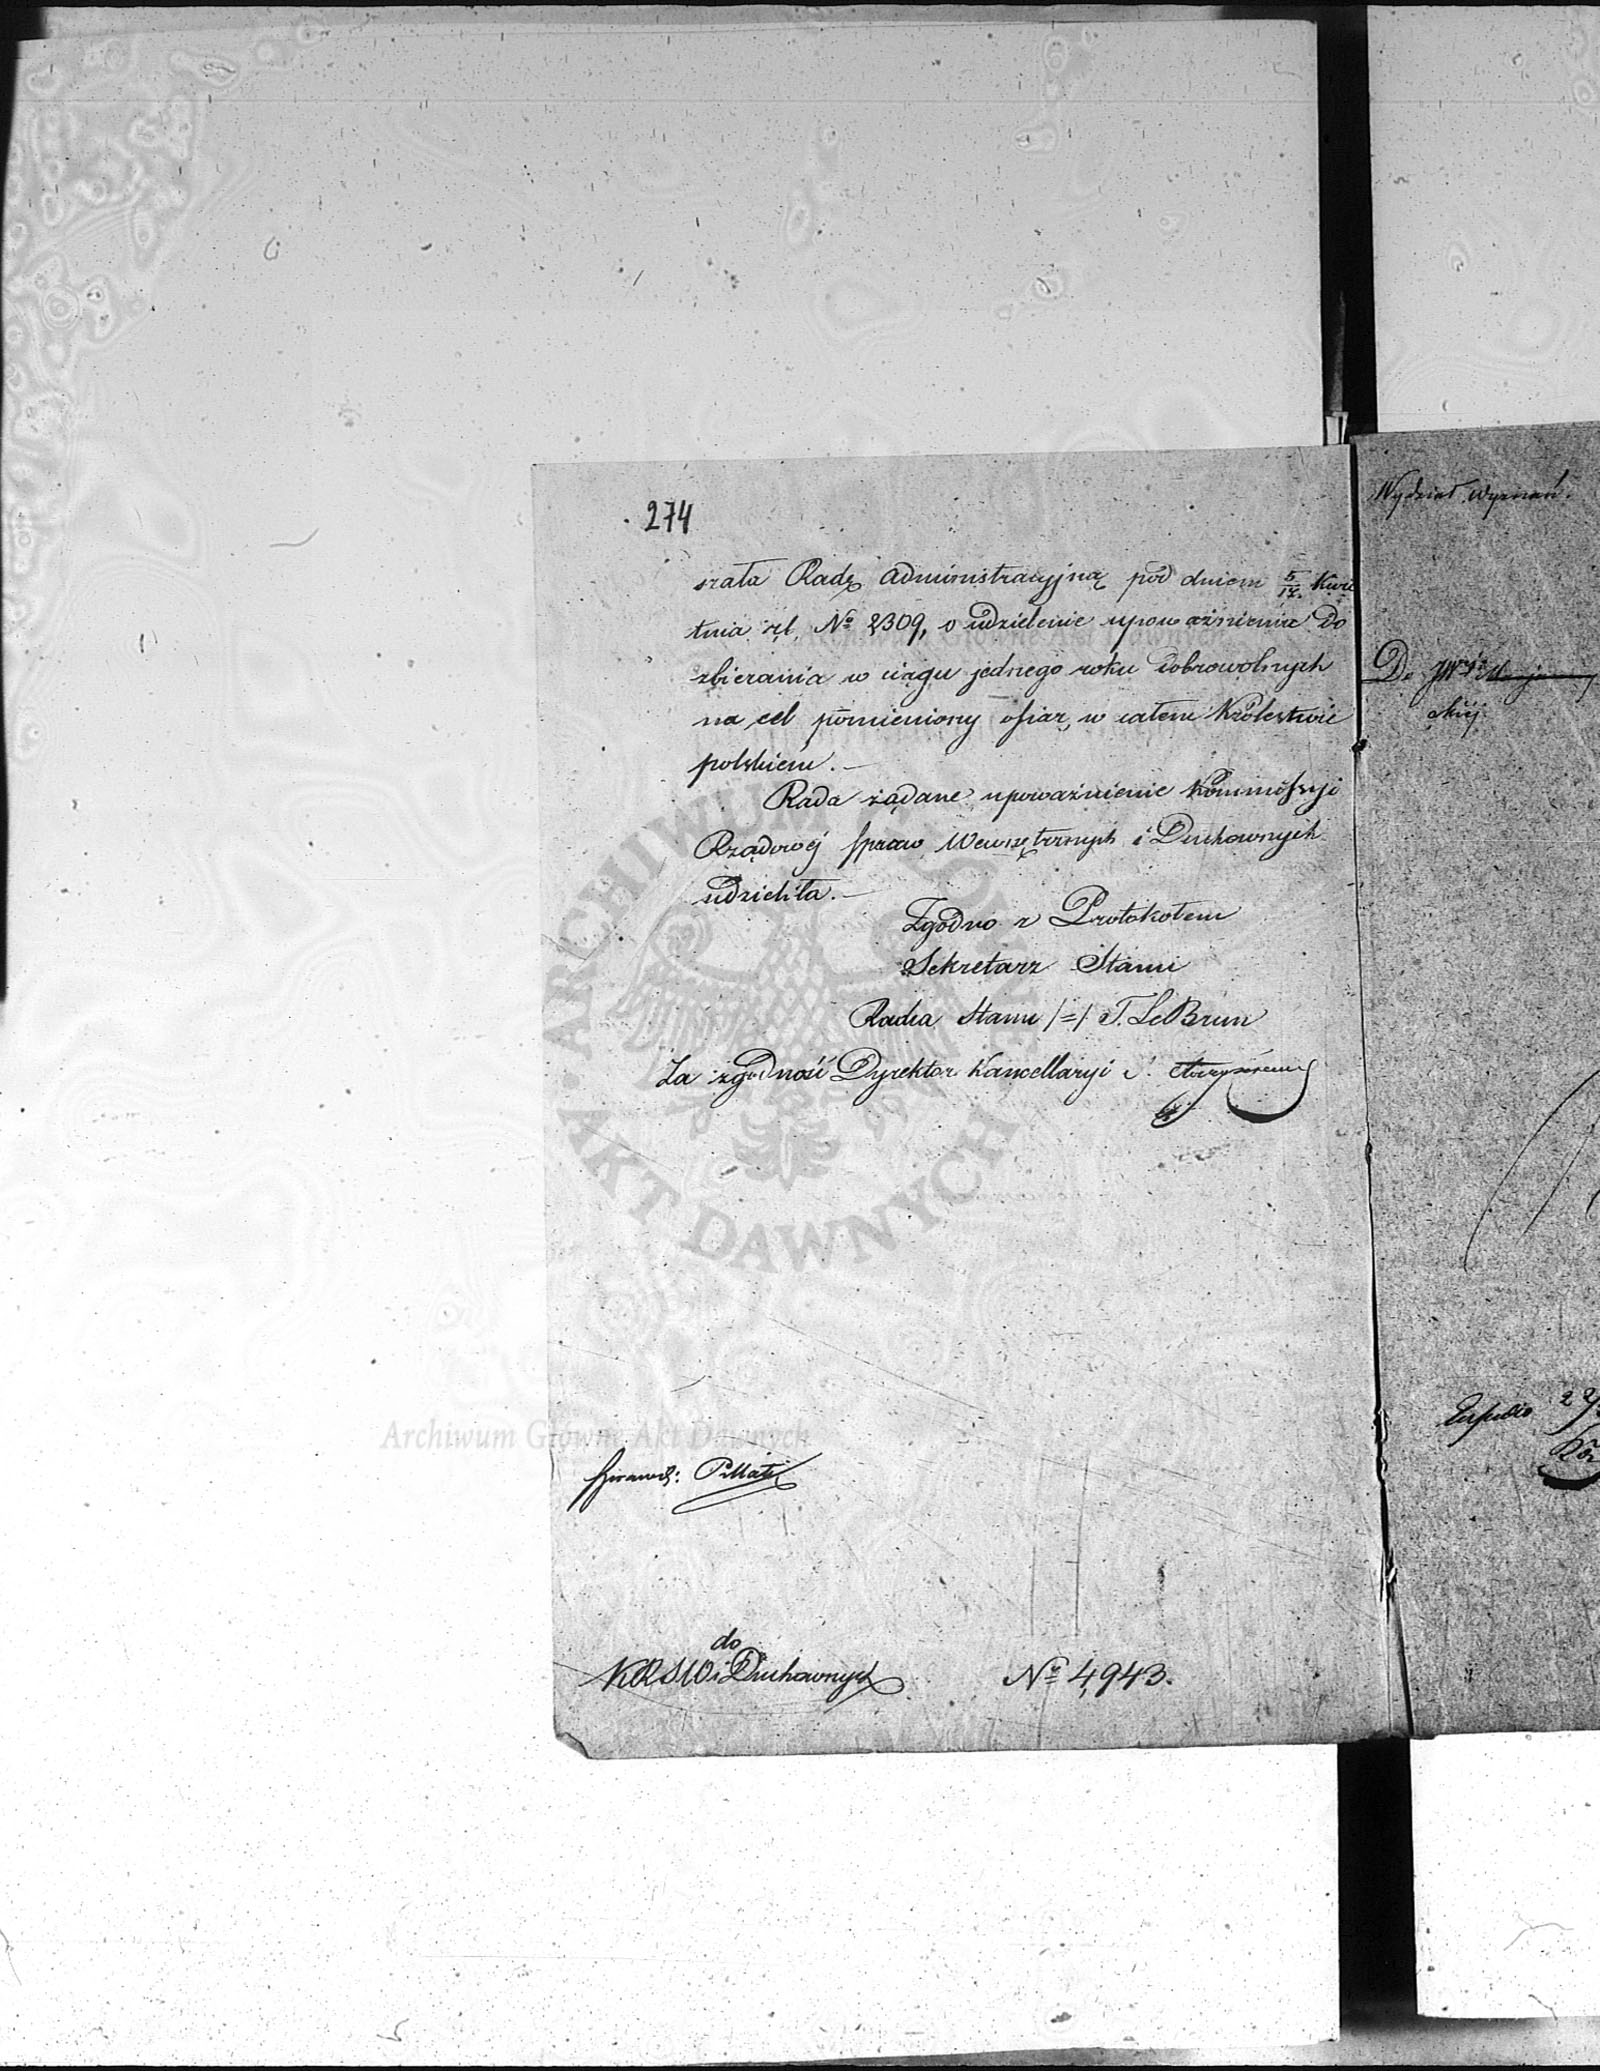 274
szała Radę Administracyjną pod dniem 5/17 Kwie
tnia r.b. No 2309, o udzielenie upoważnienia do
zbierania w ciągu jednego roku dobrowolnych
na cel pomieniony ofiar, w całem Królestwie
polskiem.—
Rada żądane upoważnienie Kommissyi
Rządowéj Spraw Wewnętrznych i Duchownych
udzieliła.—
Zgodno z Protokołem
Sekretarz Stanu
Radca Stanu /=/ T. LeBrun
Za zgodność Dyrektor Kancellaryi
do
KRSW i Duchownych
No 4,943.
Wydział Wyznań.
Do
ARCHIWUM GŁÓWNE AKT DAWNYCH
Archiwum Główne Akt Dawnych